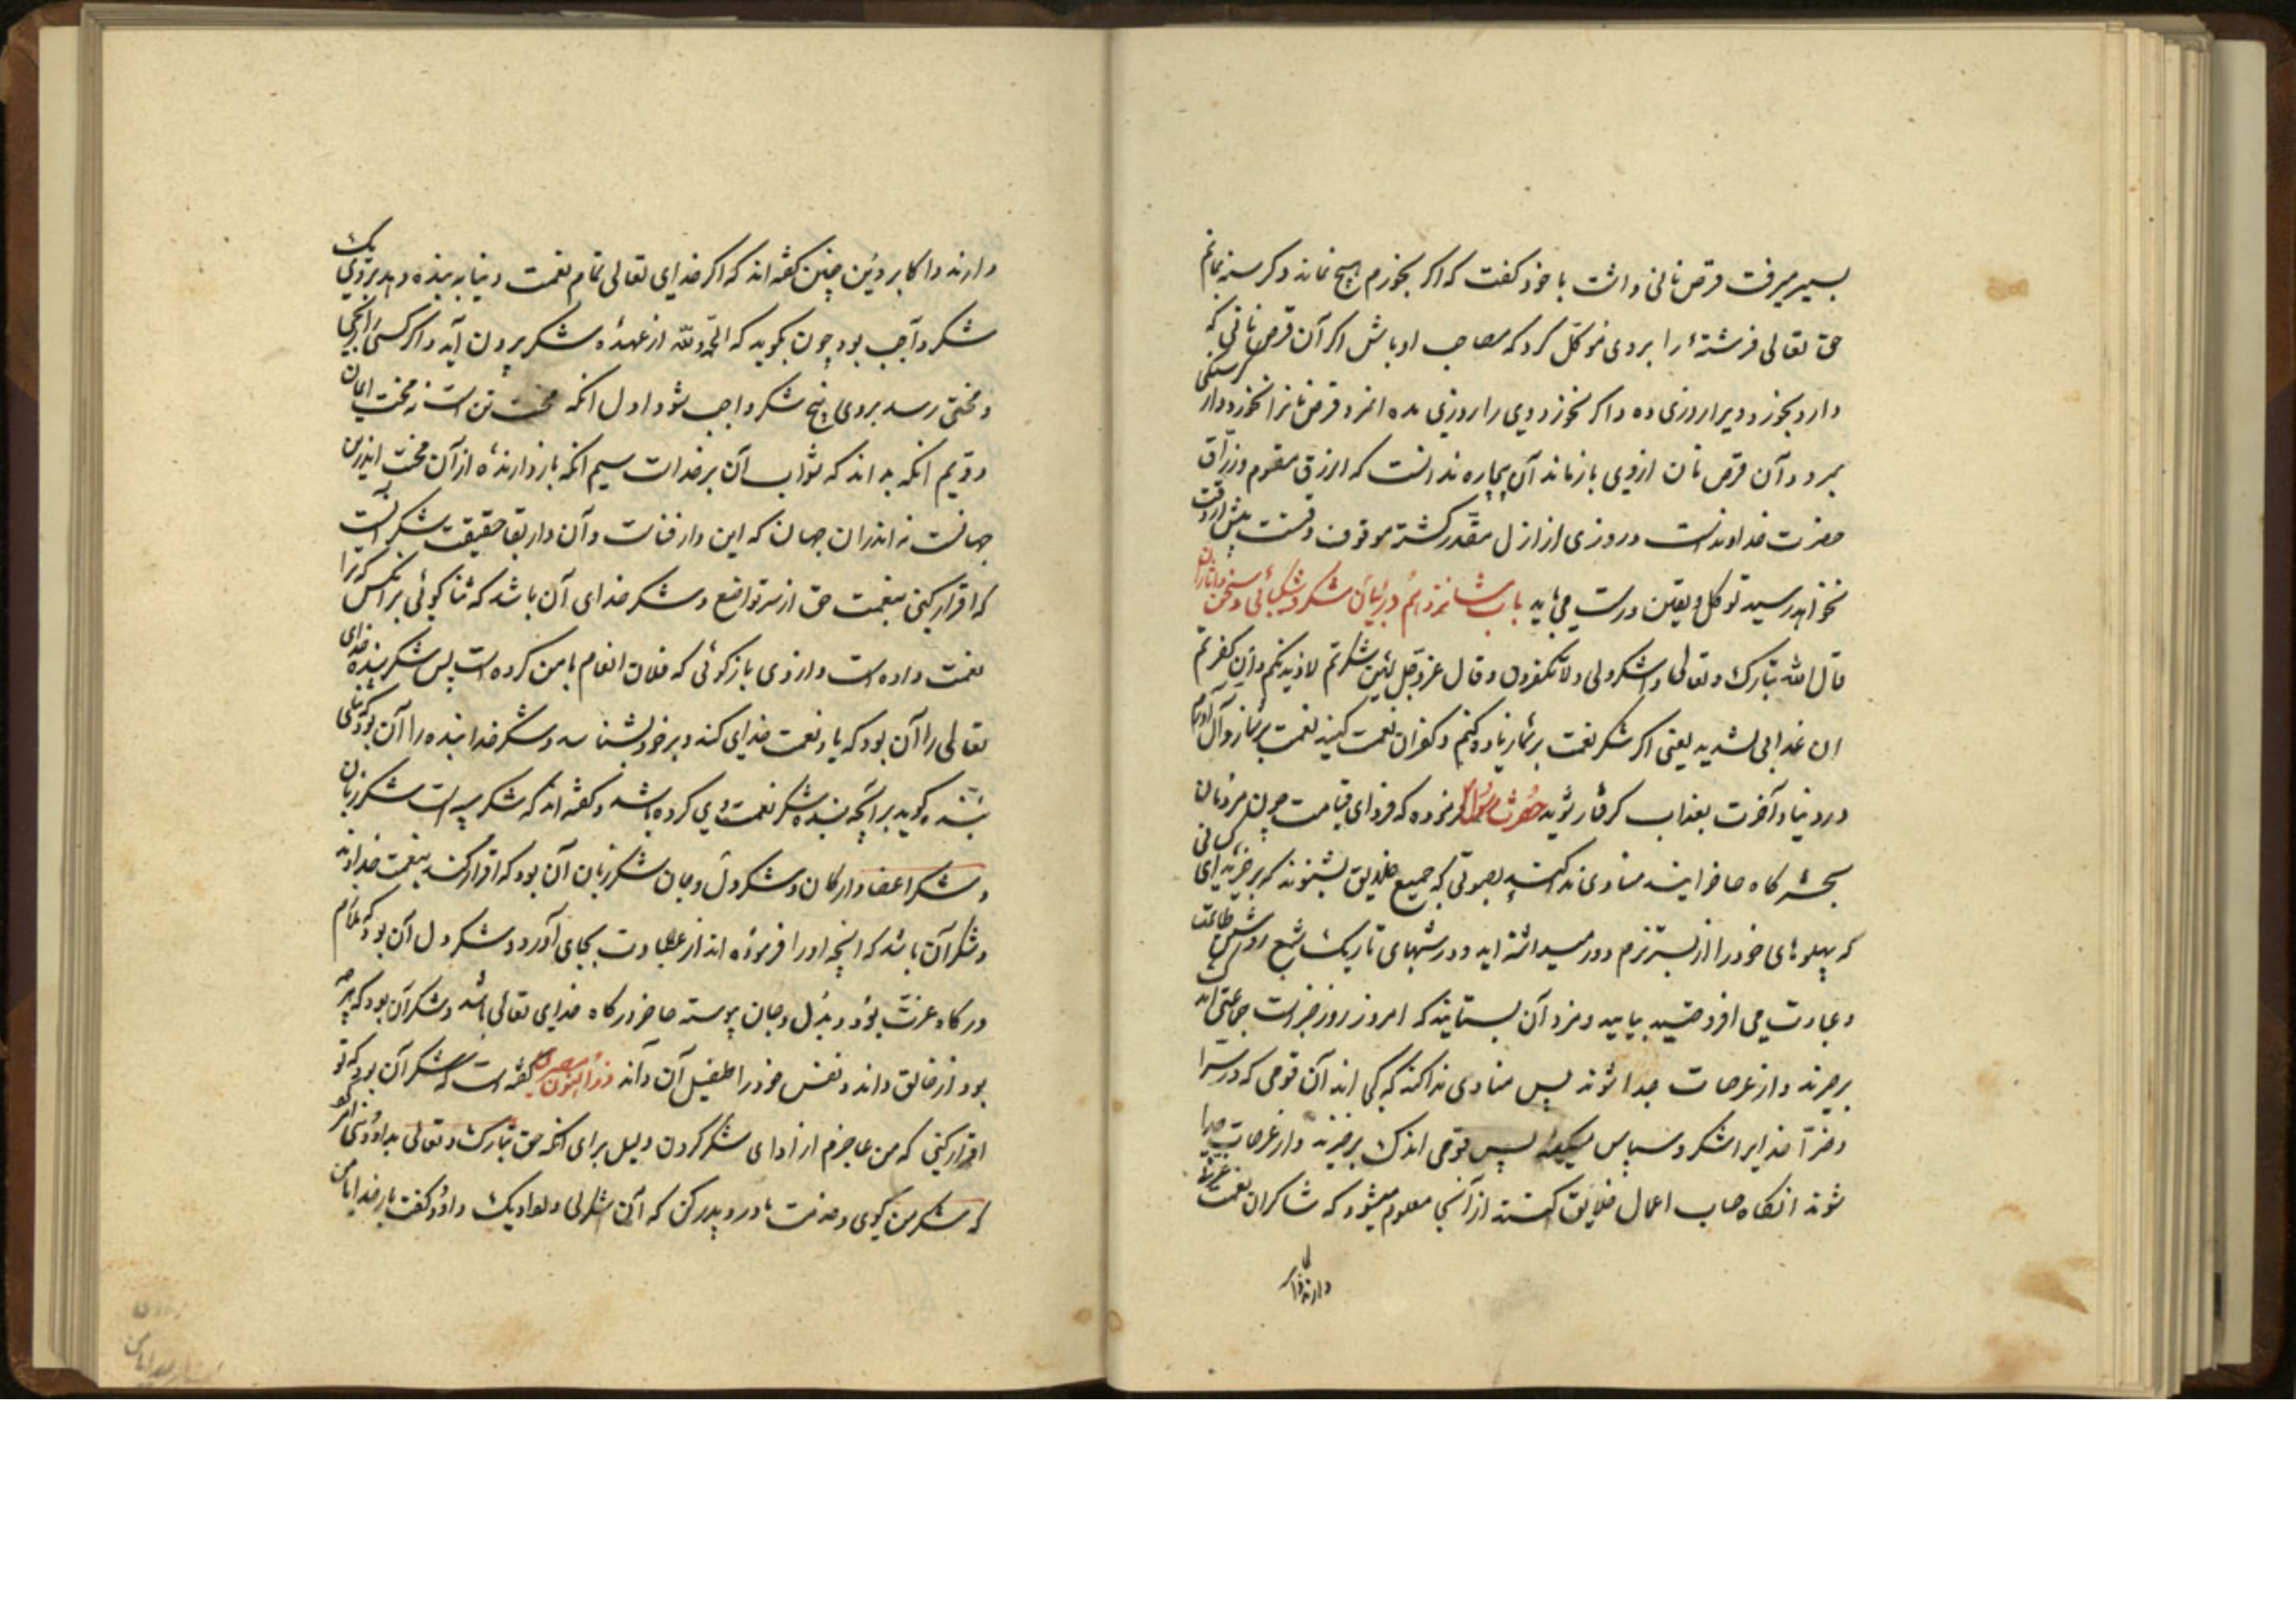 بسیر میرفت قرص نانی داشت با خود گفت که اگر بخورم هیچ نماند و گرسنه بمانم
حق تعالی فرشتهٔ را بر وی موکّل کرد که مصاحب او باش اگر آن قرص نانی که
دارد بخورد ویرا روزی ده و اگر نخورد ویرا روزی مده آنمرد قرص نانرا نخورد و از گرسنگی
بمرد و آن قرص نان از وی بازماند آن بیچاره ندانست که الرزق مقسوم و رزّاق
حضرت خداوندست و روزی از ازل مقدّر گشته موقوف وقتست پیش از وقت
نخواهد رسید توکل و یقین درست می باید باب شانزدهم در بیان شکر و شکیبائی و سخن
قال الله تبارک و تعالی و اشکرولی و لا تکفرون و قال عزّ و جلّ لئن شکرتم لازیدنکم و لئن کفرتم
ان عذابی لشدید یعنی اگر شکر نعمت بر شما زیاده کنم و کفران نعمت کنید نعمت بر شما زوال آورم
در دنیا و آخرت بعذاب گرفتار شوید حضرت رسول فرموده که فردای قیامت چون مردمان
بحشرگاه حاضر آیند منادی ندا کند بصوتی که جمیع خلایق بشنوند که برخیزید ای کسانی
که پهلوهای خود را از بستر نرم دور میداشته اید و در شبهای تاریک شمع روشن طاعت
و عبادت می افروختید بیایید و مزد آن بستانید که امروز روز جزاست جماعتی اندک
برخیزند و از عرصات جدا شوند پس منادی ندا کند که کی اند آن قومی که در سرّا
و ضرّا خدایرا شکر و سپاس میگفتند پس قومی اندک برخیزند و از عرصات جدا
شوند آنگاه حساب اعمال خلایق کنند از آنجا معلوم میشود که شاکران نعمت عزت
دارند و اکا
دارند و اکابر دین چنین گفته اند که اگر خدای تعالی تمام نعمت دنیا به بنده دهد بر وی یک
شکر واجب بود چون بگوید که الحمد لله از عهدهٔ شکر بیرون آید و اگر کسی را رنجی
و محنتی رسد بر وی پنج شکر واجب شود اول آنکه محنت تن است نه محنت ایمان
دویم آنکه بداند که ثواب آن بر خداست سیم آنکه باز دارندهٔ از آن محنت اندرین
جهانست نه اندران جهان که این دار فناست و آن دار بقا حقیقت شکر آنست
که اقرار کنی بنعمت حق از سر تواضع و شکر خدای آن باشد که ثنا گوئی بر آنکس که ترا
نعمت داده است و از وی بازگوئی که فلان انعام با من کرده است پس شکر بنده خدای
تعالی را آن بود که یاد نعمت خدای کند و بر خود بشناسد و شکر خدا بنده را آن بود که ثنای
بنده گوید بر آنچه بنده شکر نعمت وی کرده باشد و گفته اند که شکر سه است شکر زبان
و شکر اعضا و ارکان و شکر دل و جان شکر زبان آن بود که اقرار کند بنعمت خداوند
و شکر آن باشد که آنچه او را فرموده اند از عبادت بجای آورد و شکر دل آن بود که ملازم
درگاه عزت بود و بدل و جان پیوسته حاضر درگاه خدای تعالی باشد و شکر آن بود که هر چه
بود از خالق داند و نفس خود را طفیل آن داند ذو النون مصری گفته است که شکر آن بود که تو
اقرار کنی که من عاجزم از ادای شکر کردن دلیل برای آنکه حق تبارک و تعالی بداود نبی امر کرد
که شکر من گوی و خدمت مادر و پدر کن که أن اشکر لی و لوالدیک داود گفت بار خدایا من